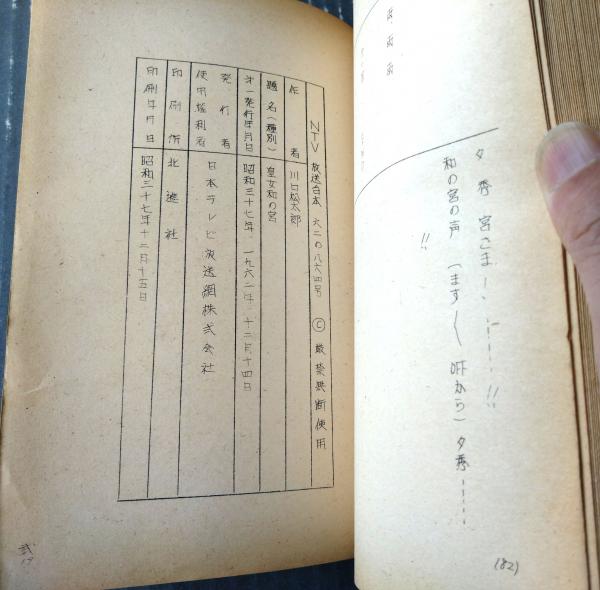 夕秀 宮さまーー!!
和の宮の声 （ます〱 吓から）夕秀……
!!
(82)
NTV 放送台本 六二の八六四号 Ⓒ 厳禁無断使用
作者 川口松太郎
題名(種別) 皇女和の宮
才一発行年月日 昭和三十七年 一九六二年 十二月十四日
発行者
使用権利者 日本テレビ放送網株式会社
印刷所 北遊社
印刷年月日 昭和三十七年十二月十五日